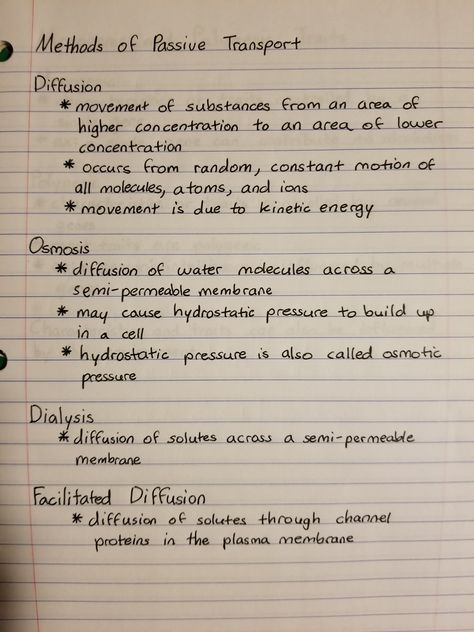 Methods of Passive Transport
Diffusion
* movement of substances from an area of
higher concentration to an area of lower
concentration
* occurs from random, constant motion of
all molecules, atoms, and ions
* movement is due to kinetic energy
Osmosis
* diffusion of water molecules across a
semi-permeable membrane
* may cause hydrostatic pressure to build up
in a cell
* hydrostatic pressure is also called osmotic
pressure
Dialysis
* diffusion of solutes across a semi-permeable
membrane
Facilitated Diffusion
* diffusion of solutes through channel
proteins in the plasma membrane